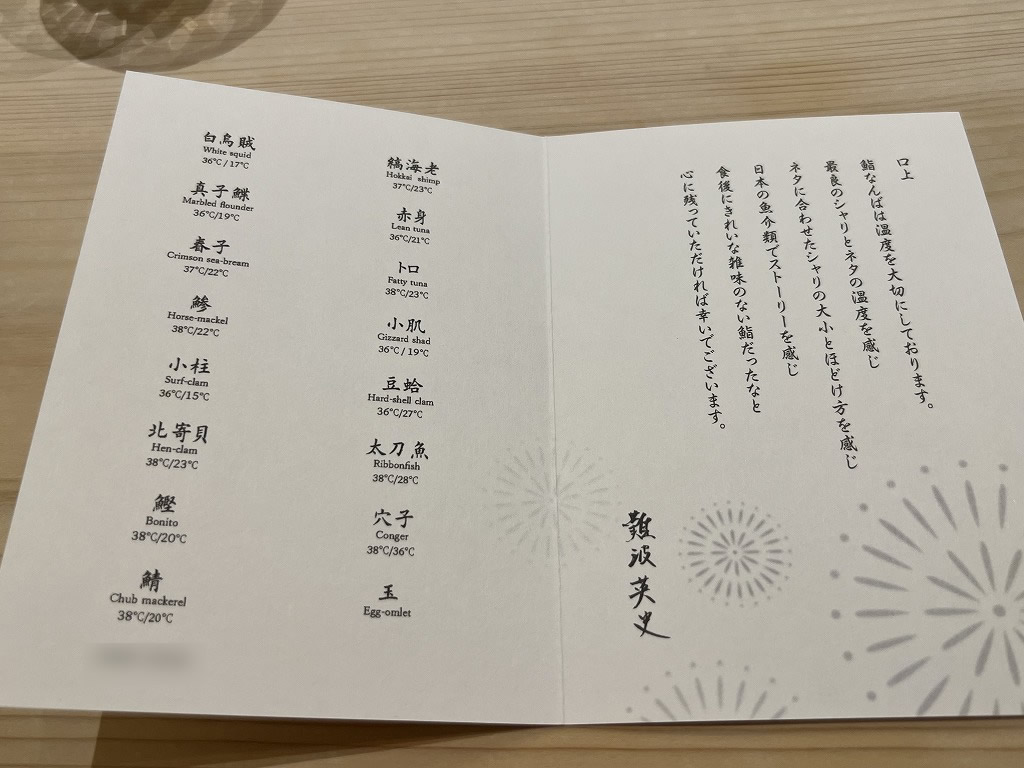 白烏賊
White squid
36℃ / 17℃
真子鰈
Marbled flounder
36℃/19℃
春子
Crimson sea-bream
37℃/22℃
鯵
Horse-mackel
38℃/22℃
小柱
Surf-clam
36℃/15℃
北寄貝
Hen-clam
38℃/23℃
鰹
Bonito
38℃/20℃
鯖
Chub mackerel
38℃/20℃
縞海老
Hokkai shimp
37℃/23℃
赤身
Lean tuna
36℃/21℃
トロ
Fatty tuna
38℃/23℃
小肌
Gizzard shad
36℃ / 19℃
豆蛤
Hard-shell clam
36℃/27℃
太刀魚
Ribbonfish
38℃/28℃
穴子
Conger
38℃/36℃
玉
Egg-omlet
口上
鮨なんばは温度を大切にしております。
最良のシャリとネタの温度を感じ
ネタに合わせたシャリの大小とほどけ方を感じ
日本の魚介類でストーリーを感じ
食後にきれいな雑味のない鮨だったなと
心に残っていただければ幸いでございます。
難波英史